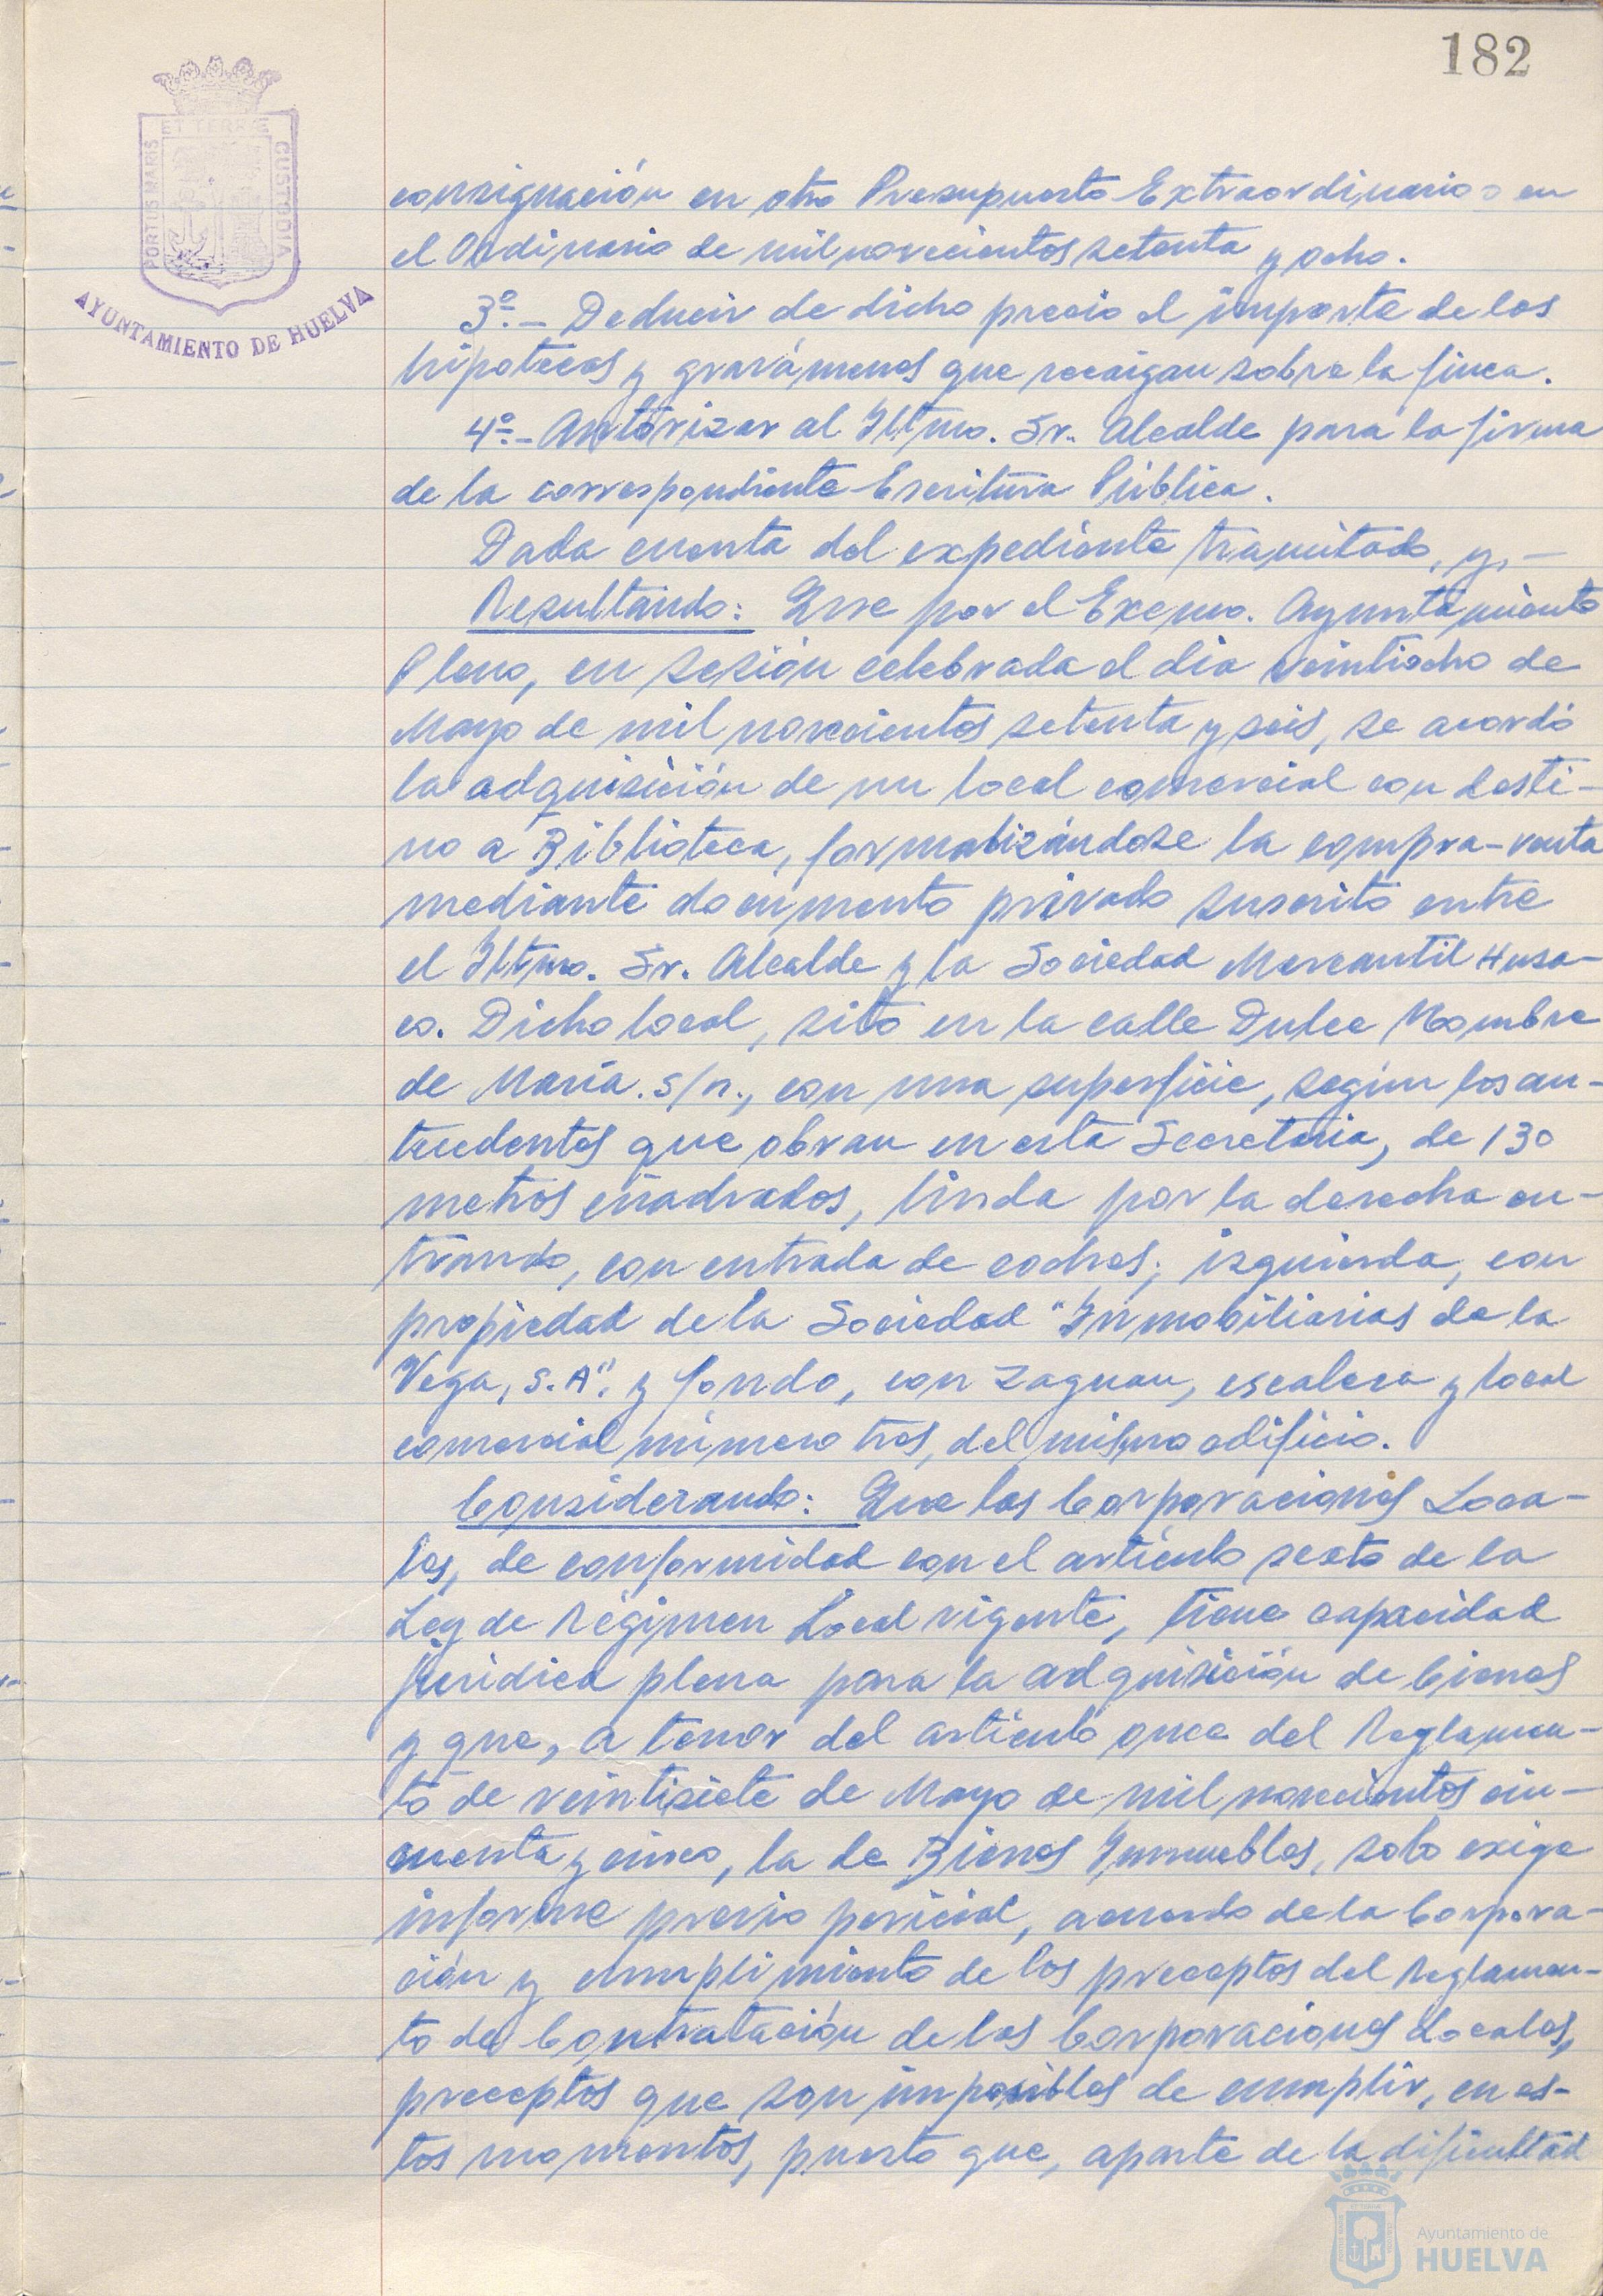 182
ET TERRÆ
PORTUS MARIS
CUSTODIA
AYUNTAMIENTO DE HUELVA
consignación en otro Presupuesto Extraordinario o en
el Ordinario de mil novecientos setenta y ocho.
3º.- Deducir de dicho precio el importe de las
hipotecas y gravámenes que recaigan sobre la finca.
4º.- Autorizar al Iltmo. Sr. Alcalde para la firma
de la correspondiente Escritura Pública.
Dada cuenta del expediente tramitado, y,-
Resultando: Que por el Excmo. Ayuntamiento
Pleno, en sesión celebrada el día veintiocho de
Mayo de mil novecientos setenta y seis, se acordó
la adquisición de un local comercial con desti-
no a Biblioteca, formalizándose la compra-venta
mediante documento privado suscrito entre
el Iltmo. Sr. Alcalde y la Sociedad Mercantil Husa-
co. Dicho local, sito en la calle Dulce Nombre
de María. s/n., con una superficie, según los an-
tecedentes que obran en esta Secretaría, de 130
metros cuadrados, linda por la derecha en-
trando, con entrada de coches; izquierda, con
propiedad de la Sociedad "Inmobiliarias de la
Vega, S.A". y fondo, con zaguan, escalera y local
comercial número tres, del mismo edificio.
Considerando: Que las Corporaciones Loca-
les, de conformidad con el artículo sexto de la
Ley de Régimen Local vigente, tiene capacidad
jurídica plena para la adquisición de bienes
y que, a tenor del artículo once del Reglamen-
to de veintisiete de Mayo de mil novecientos cin-
cuenta y cinco, la de Bienes Inmuebles, solo exige
informe previo pericial, acuerdo de la Corpora-
ción y cumplimiento de los preceptos del Reglamen-
to de Contratación de las Corporaciones Locales,
preceptos que son imposibles de cumplir, en es-
tos momentos, puesto que, aparte de la dificultad
Ayuntamiento de
HUELVA